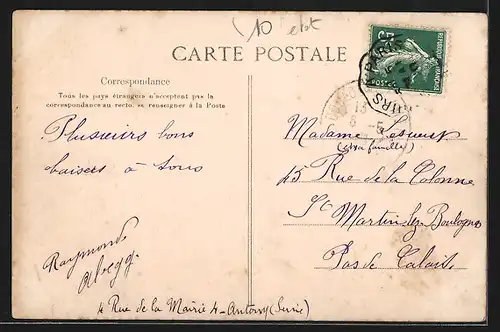 10
CARTE POSTALE
Correspondance
Tous les pays étrangers n'acceptent pas la
correspondance au recto, se renseigner à la Poste
Plusieurs bons
baisers à tous
Raymonde
4 Rue de la Mairie 4 - Antony (Seine)
Madame Lesueur
(et sa famille)
45 Rue de la Colonne
St Martin-lez-Boulogne
Pas de Calais
PARIS